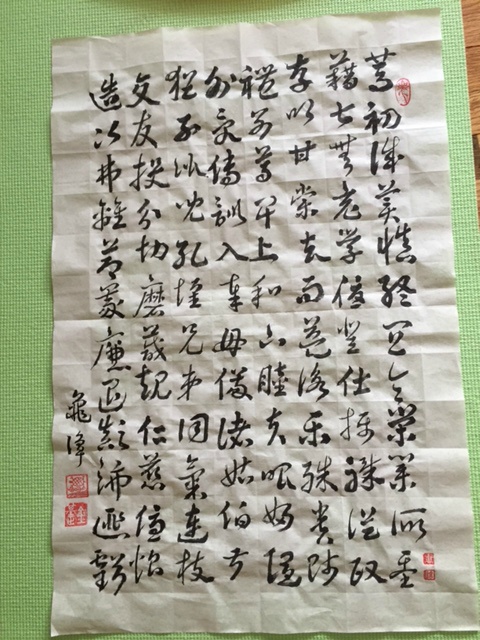 篤初誠美慎終宜令榮業所基
藉甚無竟學優登仕攝職從政
存以甘棠去而益詠樂殊貴賤
禮別尊卑上和下睦夫唱婦隨
外受傅訓入奉母儀諸姑伯叔
猶子比兒孔懷兄弟同氣連枝
交友投分切磨箴規仁慈隱惻
造次弗離節義廉退顛沛匪虧